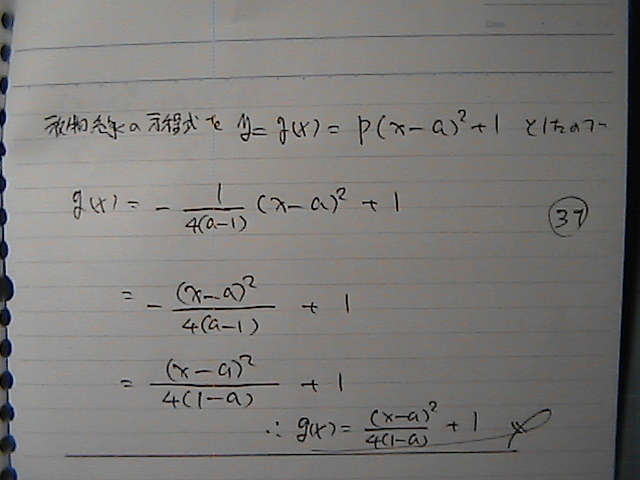 放物線の方程式を y = g(x) = p(x-a)²+1 としたので
g(x) = - 1/4(a-1) (x-a)² + 1
㊲
= - (x-a)²/4(a-1) + 1
= (x-a)²/4(1-a) + 1
∴ g(x) = (x-a)²/4(1-a) + 1